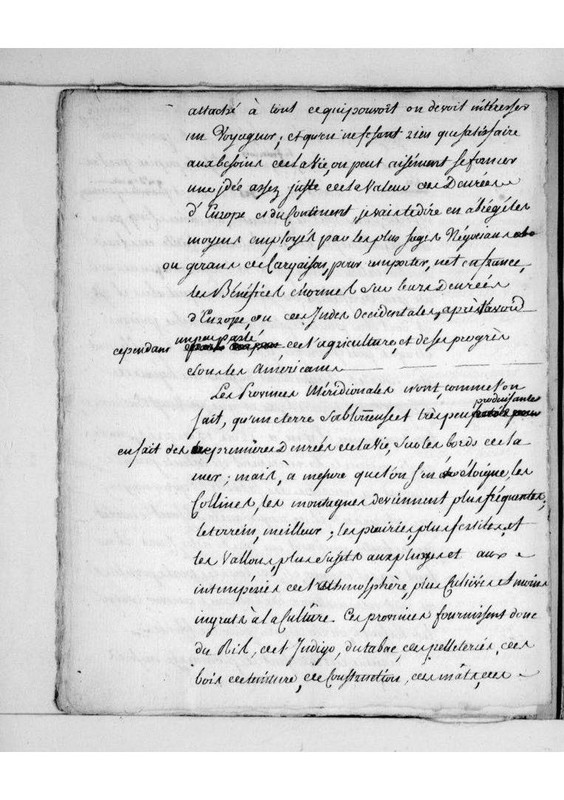 attaché à tout ce qui pouvoit ou devoit intéresser
un Voyageur; et qu'en ne fesant rien que satisfaire
aux besoins de la vie, on peut aisément se former
une idée assez juste de la valeur des Denrées
d'Europe et du Continent, je vais dire en abrégé les
moyens employés par les plus sages Négocians
ou gérans de Cargaison, pour remporter, net en france,
les Bénéfices énormes sur leurs Denrées
d'Europe, ou des Indes Occidentales, après avoir
un peu parlé
cependant de l'agriculture, et de ses progrès
chez les Américains
Les Provinces Méridionales n'ont, comme l'on
produisantes
sait, qu'une terre sablonneuse et très peu
en fait des premières Denrées de la vie, sur les bords de la
mer; mais, à mesure que l'on s'en éloigne, les
Collines, les montagnes deviennent plus fréquentes,
le terrein, meilleur; les prairies, plus fertiles, et
les Vallons, plus sujets aux pluyes et aux
intempéries de l'Athmosphère, plus Cultivés et moins
ingrats à la Culture. Ces provinces fournissent donc
du Ris, de l'Indigo, du tabac, des pelleteries, des
bois de teinture, de Construction, des mâts, des